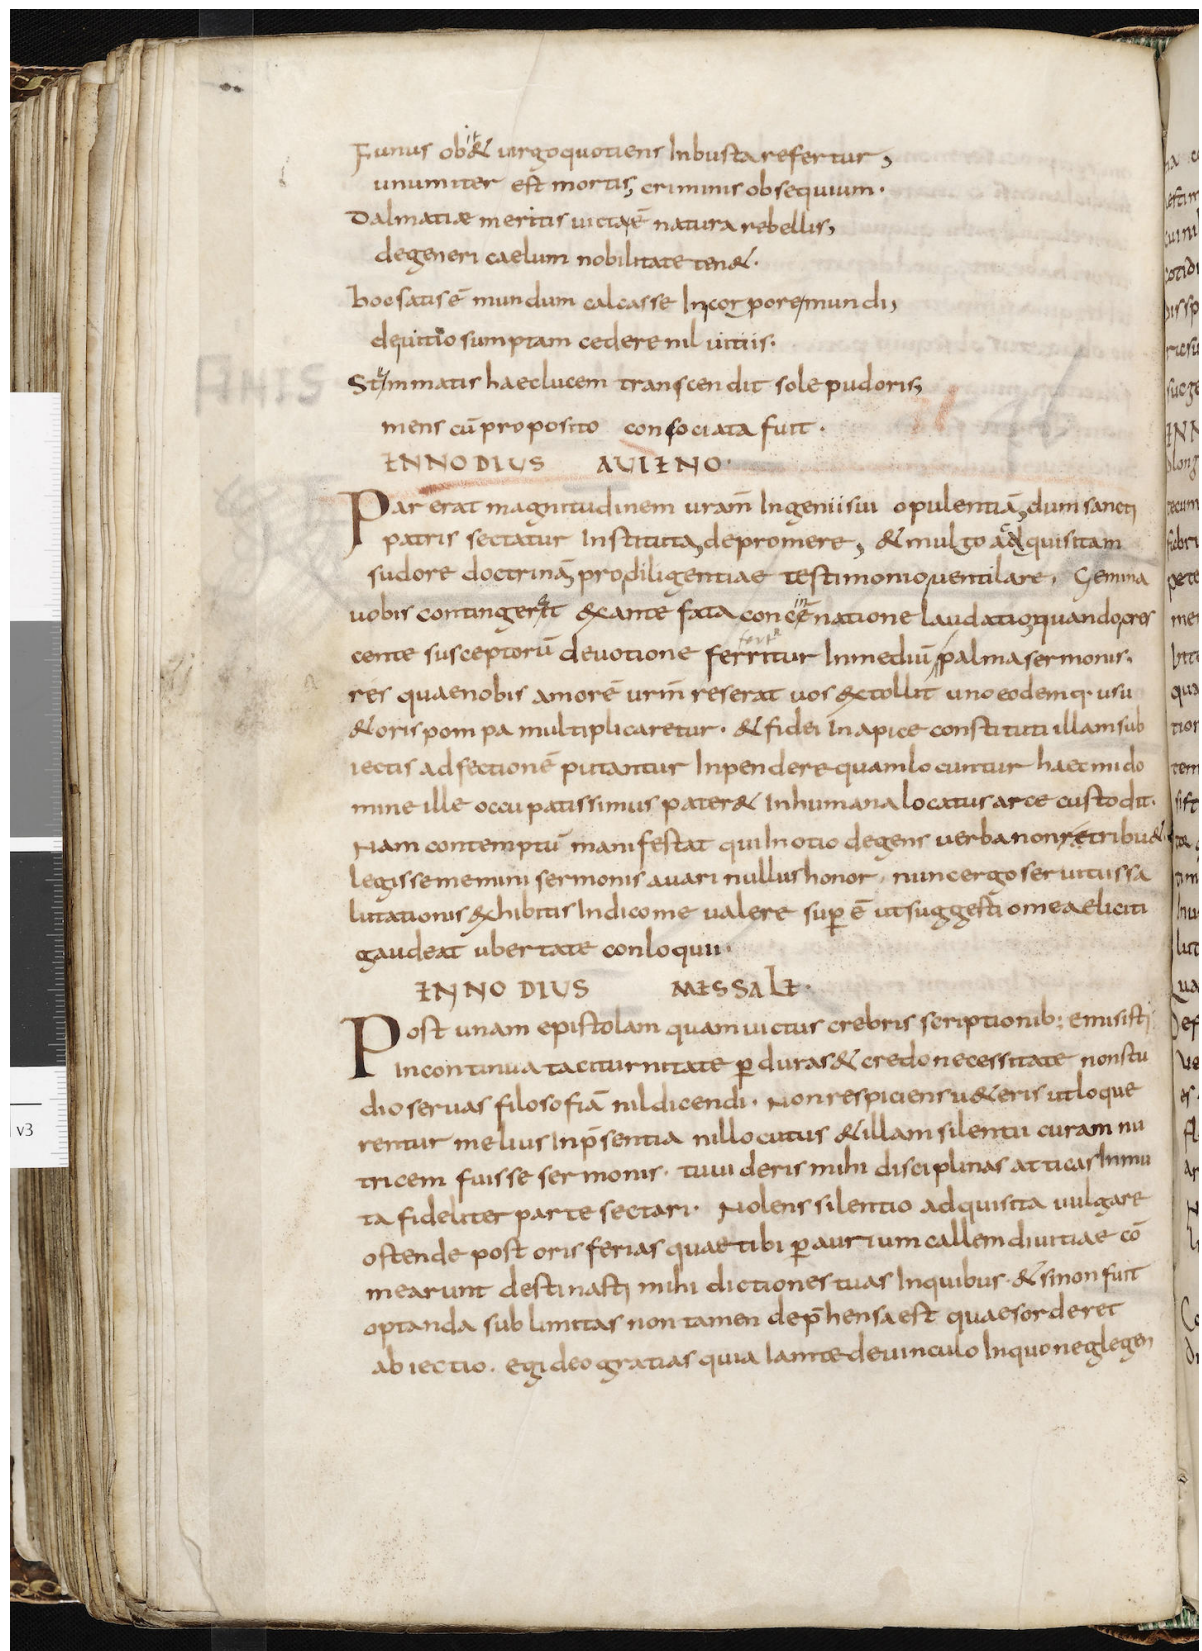 Funus ob&it uirgo quotiens In busta refertur,
unum iter est mortis, criminis obsequium·
Dalmatiae meritis uicta ē natura rebellis,
degeneri caelum nobilitate ten&·
hoc satis ē mundum calcasse In corpore mundi,
de uitio sumptam cedere nil uitiis·
Stemmatis haec lucem transcendit sole pudoris,
mens cū proposito consociata fuit·
ENNODIUS AUIENO·
Par erat magnitudinem uram̄ Ingenii sui opulentiā, dum sancti
patris sectatur Instituta, depromere, & multo adquisitam
sudore doctrinā, pro diligentiae testimonio uentilare, Gemina
uobis contingerat & ante fata concinnatione laudatio, quando cres
cente susceptorū deuotione ferritur In mediū palma sermonis·
res quae nobis amorē urm̄ reserat uos &tollit uno eodemq· usu
& oris pompa multiplicaretur· & fidei In apice constituti illam sub
iectis adfectionē putantur Inpendere quam locuntur haec mi do
mine ille occupatissimus pater & In humana locatus arce custodit·
Nam contemptū manifestat qui In otio degens uerba non retribu&·
legisse memini sermonis auari nullus honor, nunc ergo seruitus sa
lutationis &hibitis Indico me ualere sup̄ ē ut suggestio mea eliciti
gaudeat ubertate conloquii·
ENNODIUS MESSALE·
Post unam epistolam quam uictus crebris scriptionib; emisisti
In continua taciturnitate p̄duras & credo necessitate non stu
dio seruas filosofiā nil dicendi· Non respiciens u&eris ut loque
rentur melius In p̄sentia nil locutus & illam silentii curam nu
tricem fuisse sermonis· tu uideris mihi disciplinas atticas Inmu
ta fideliter parte sectari· Nolens silentio adquisita uulgare
ostende post oris ferias quae tibi p̄ aurium callem diuitiae cō
mearunt destinasti mihi dictiones tuas In quibus· & si non fuit
optanda sublimitas non tamen dep̄hensa est quae sorderet
abiectio· egi deo gratias quia lante deuinculo In quo neglegen
ANIS
v3